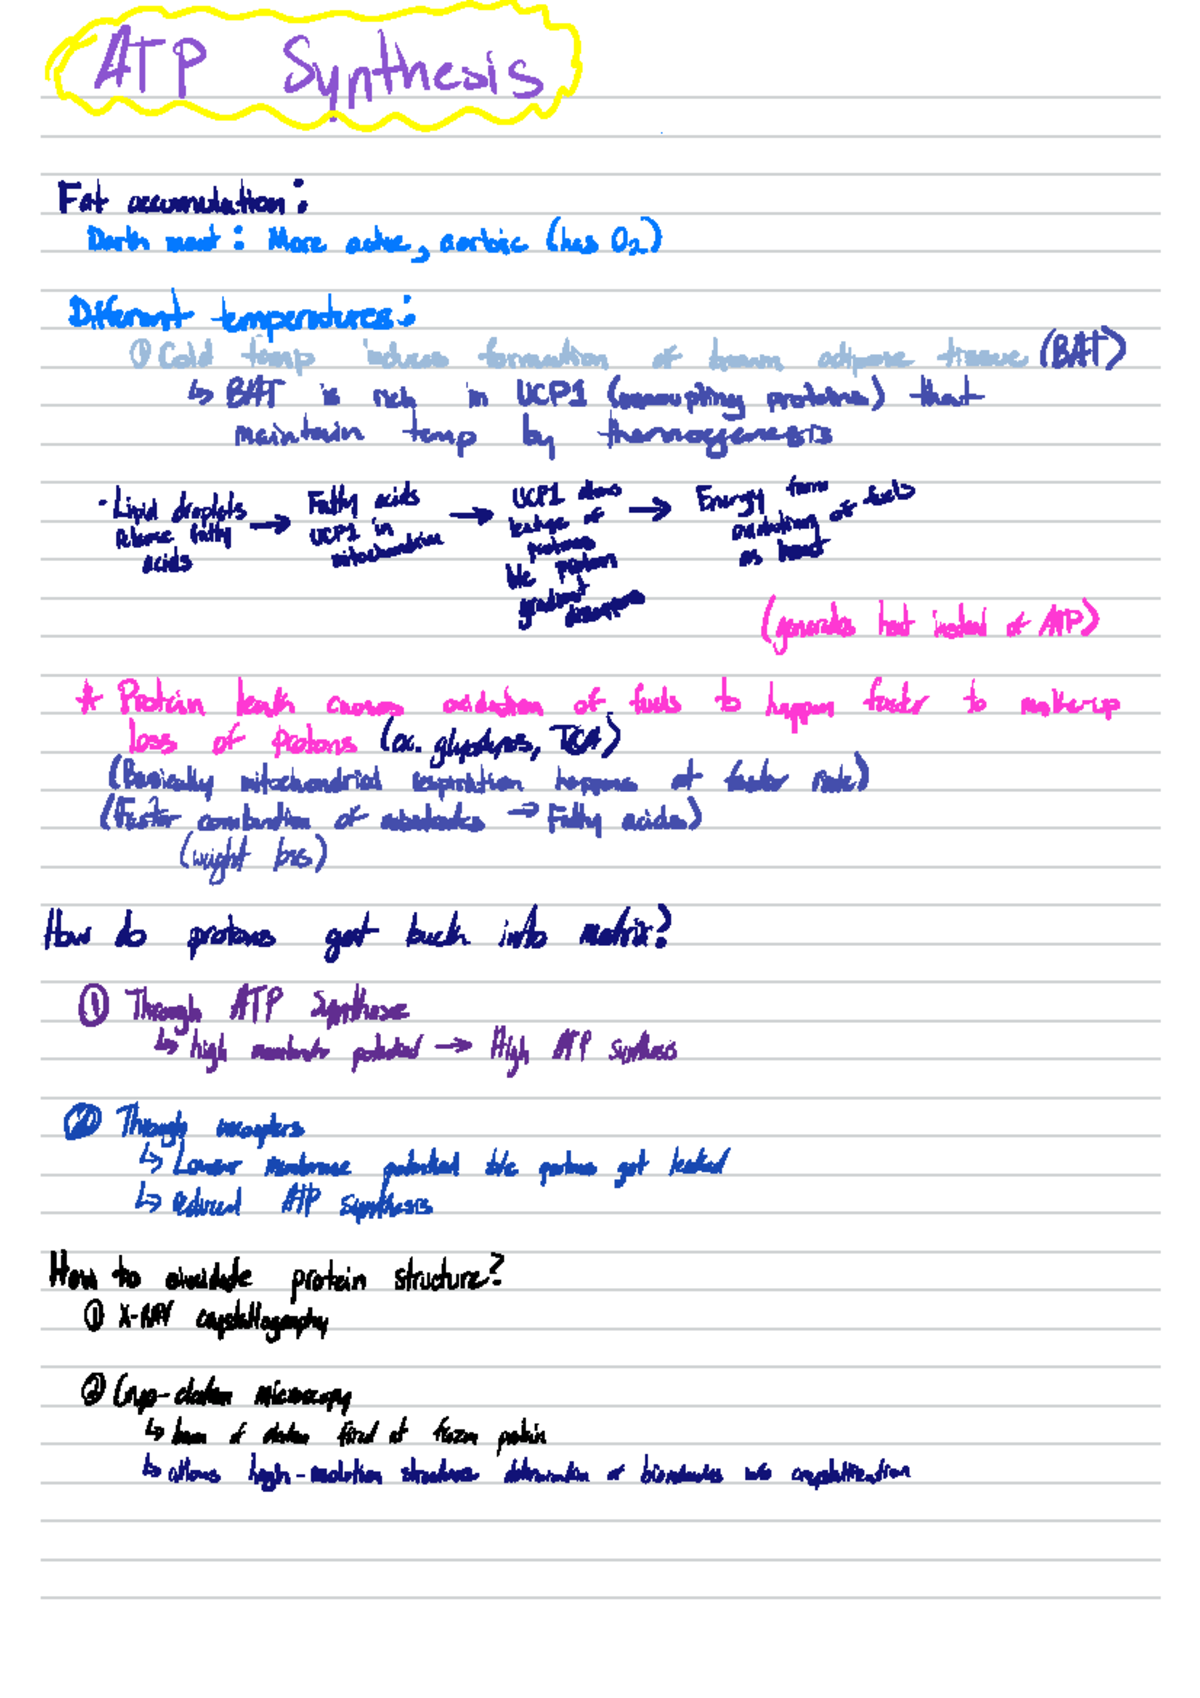 ATP Synthesis
Fat accumulation:
Dark meat: More active, aerobic (has O₂)
Different temperatures:
① Cold temp induces formation of brown adipose tissue (BAT)
↳ BAT is rich in UCP1 (uncoupling proteins) that
maintain temp by thermogenesis
· Lipid droplets
release fatty
acids
→
Fatty acids
UCP1 in
mitochondria
→
UCP1 allows
leakage of
protons
b/c proton
gradient
→
Energy from
oxidation of fuels
as heat
(generates heat instead of ATP)
* Protein leak causes oxidation of fuels to happen faster to make-up
loss of protons (ex. glycolysis, TCA)
(Basically mitochondrial respiration happens at faster rate)
(Faster combustion of substrates → Fatty acids)
(weight loss)
How do protons get back into matrix?
① Through ATP Synthase
↳ high membrane potential → High ATP synthesis
② Through uncouplers
↳ Lower membrane potential b/c protons get leaked
↳ reduced ATP synthesis
How to elucidate protein structure?
① X-RAY crystallography
② Cryo-electron microscopy
↳ beam of electron fired at frozen protein
↳ allows high-resolution structure determination of biomolecules w/o crystallization